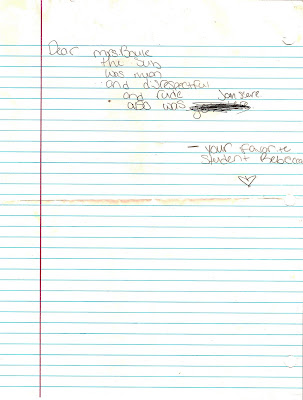 Dear Mrs. Bouie
the sub
was myan
and disrespectful
and rude
also was
- your favorite
student Rebecca